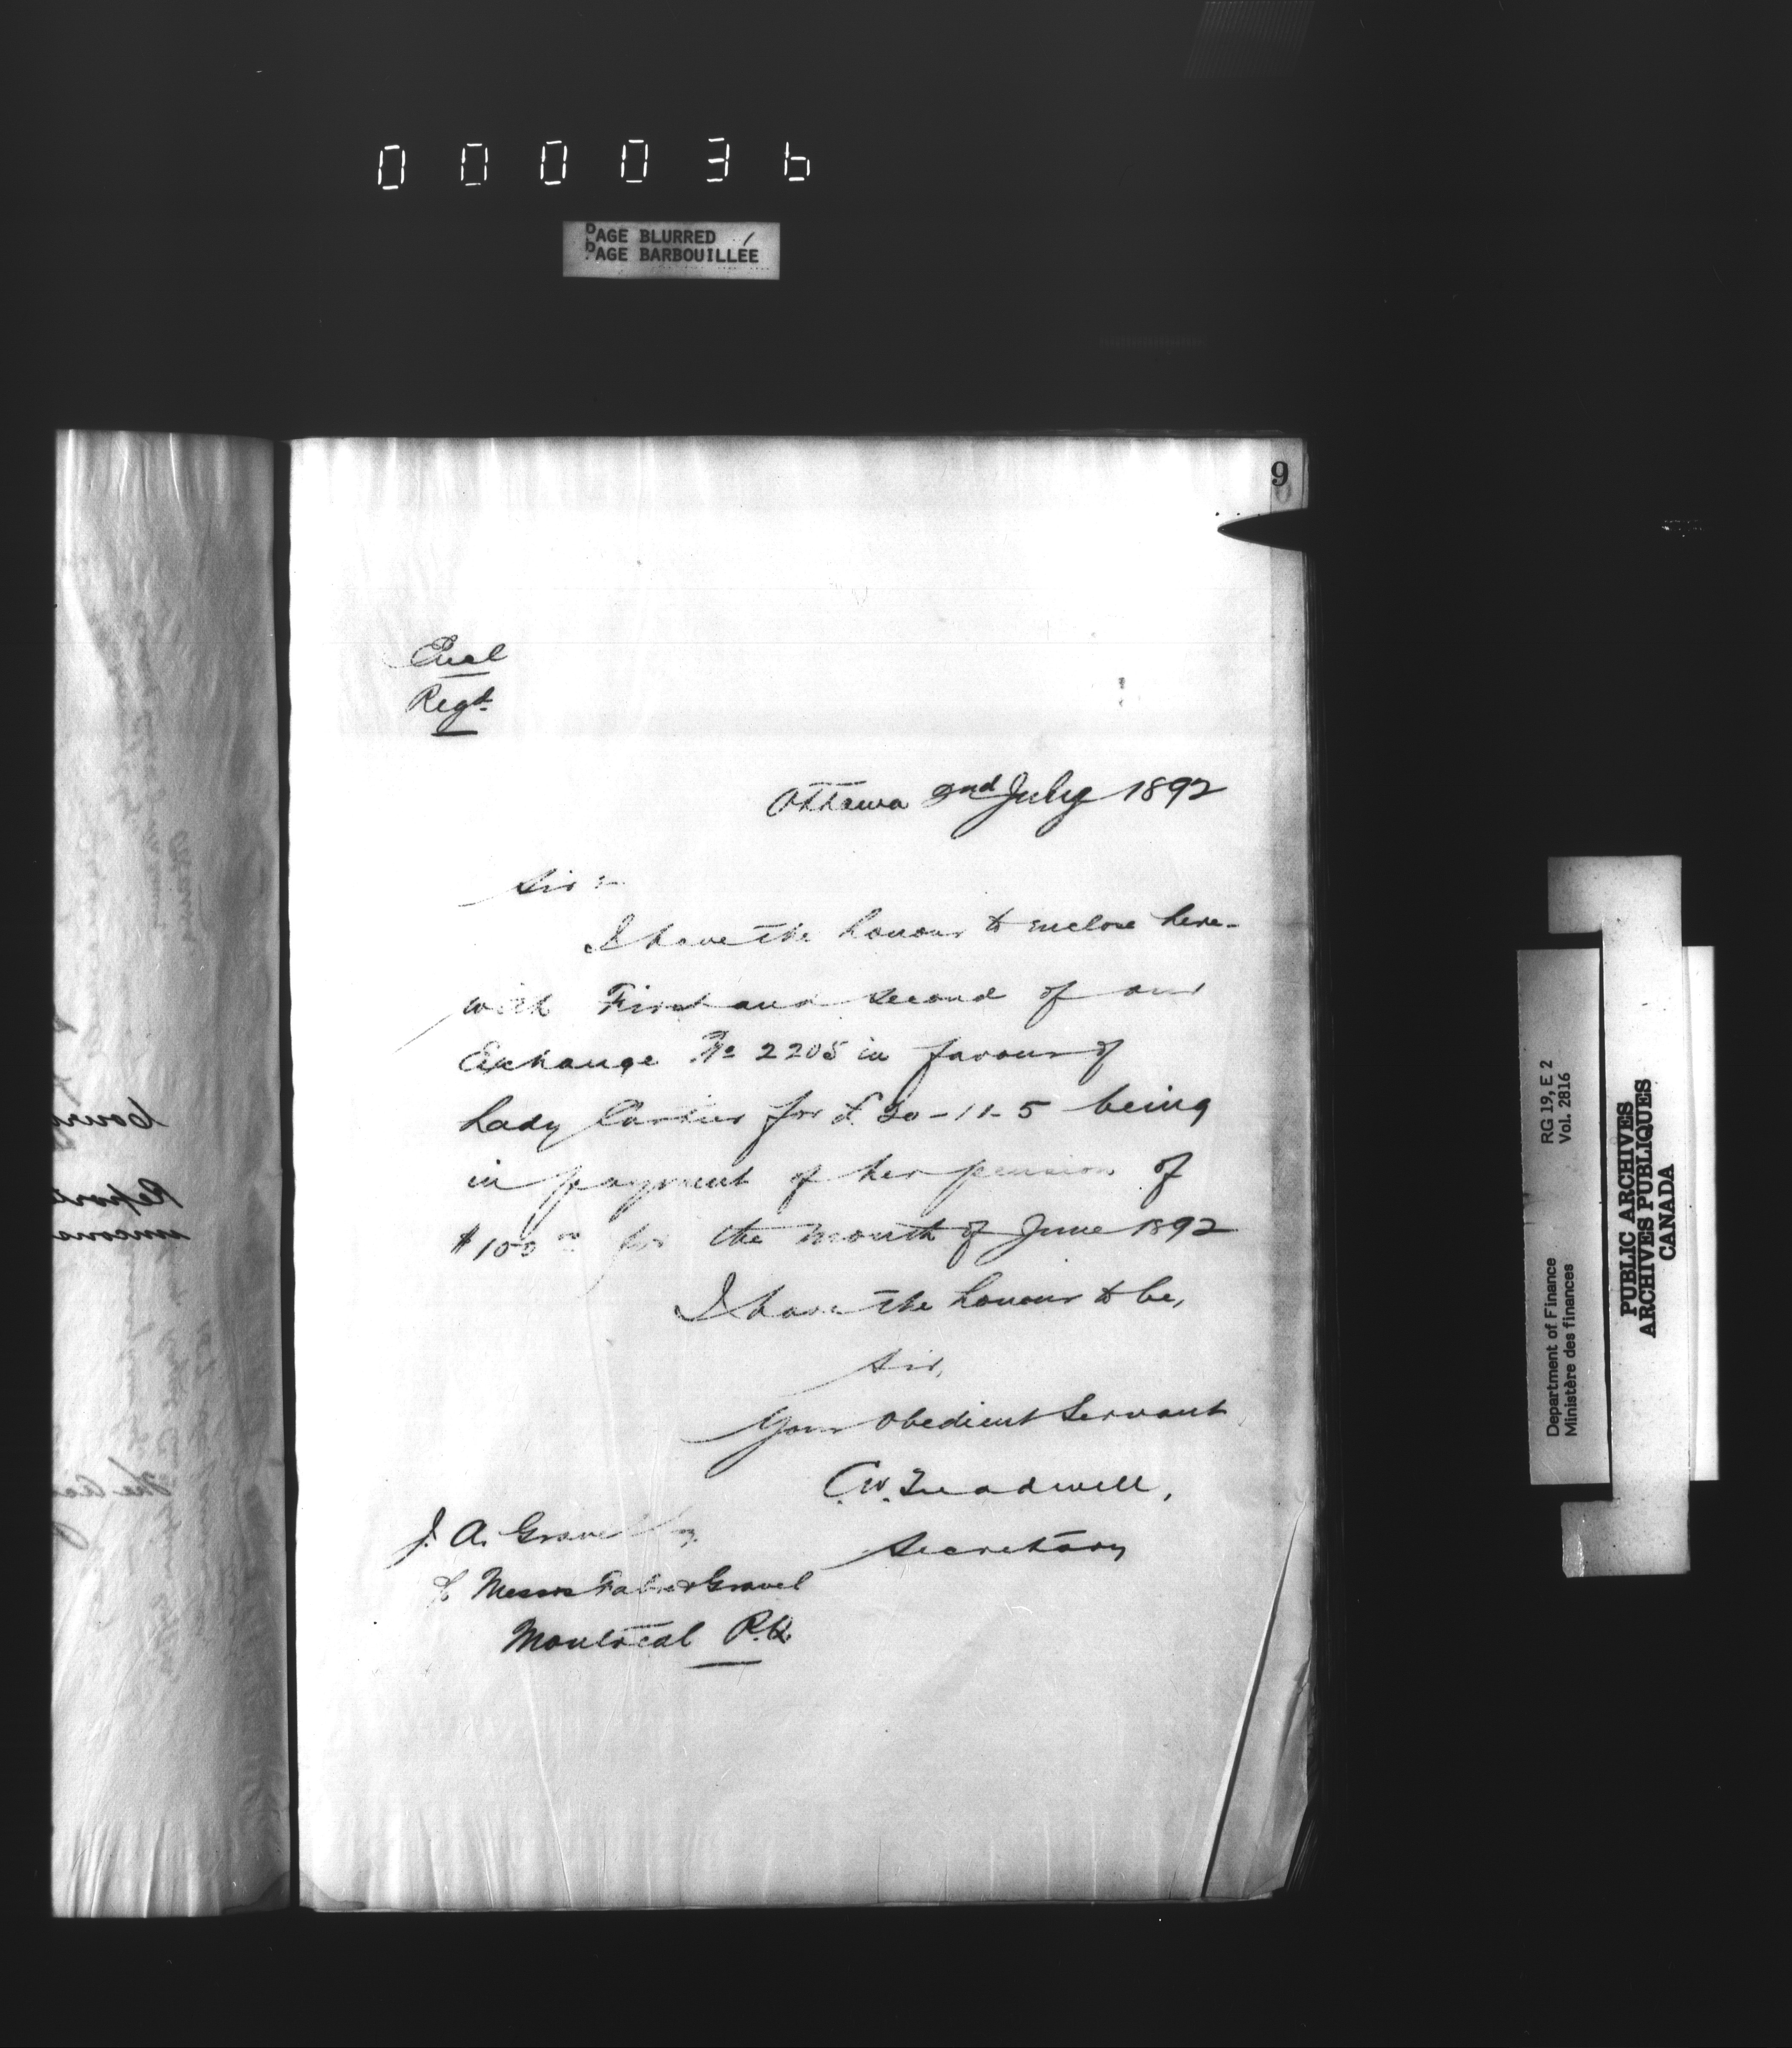 000036
PAGE BLURRED
PAGE BARBOUILLÉE
9
Encl
Regd.
Ottawa 2nd July 1892
Sir :-
I have the honour to enclose here-
with First and second of our
Exchange No 2205 in favour of
Lady Cartier for £20-11-5 being
in payment of her pension of
$100 00 for the month of June 1892
I have the honour to be,
Sir,
Your Obedient Servant
C.W. Treadwell,
Secretary
J. A. Gravel
Messrs Fabre & Gravel
Montreal P.Q.
RG 19, E 2
Vol. 2816
Department of Finance
Ministère des finances
PUBLIC ARCHIVES
ARCHIVES PUBLIQUES
CANADA